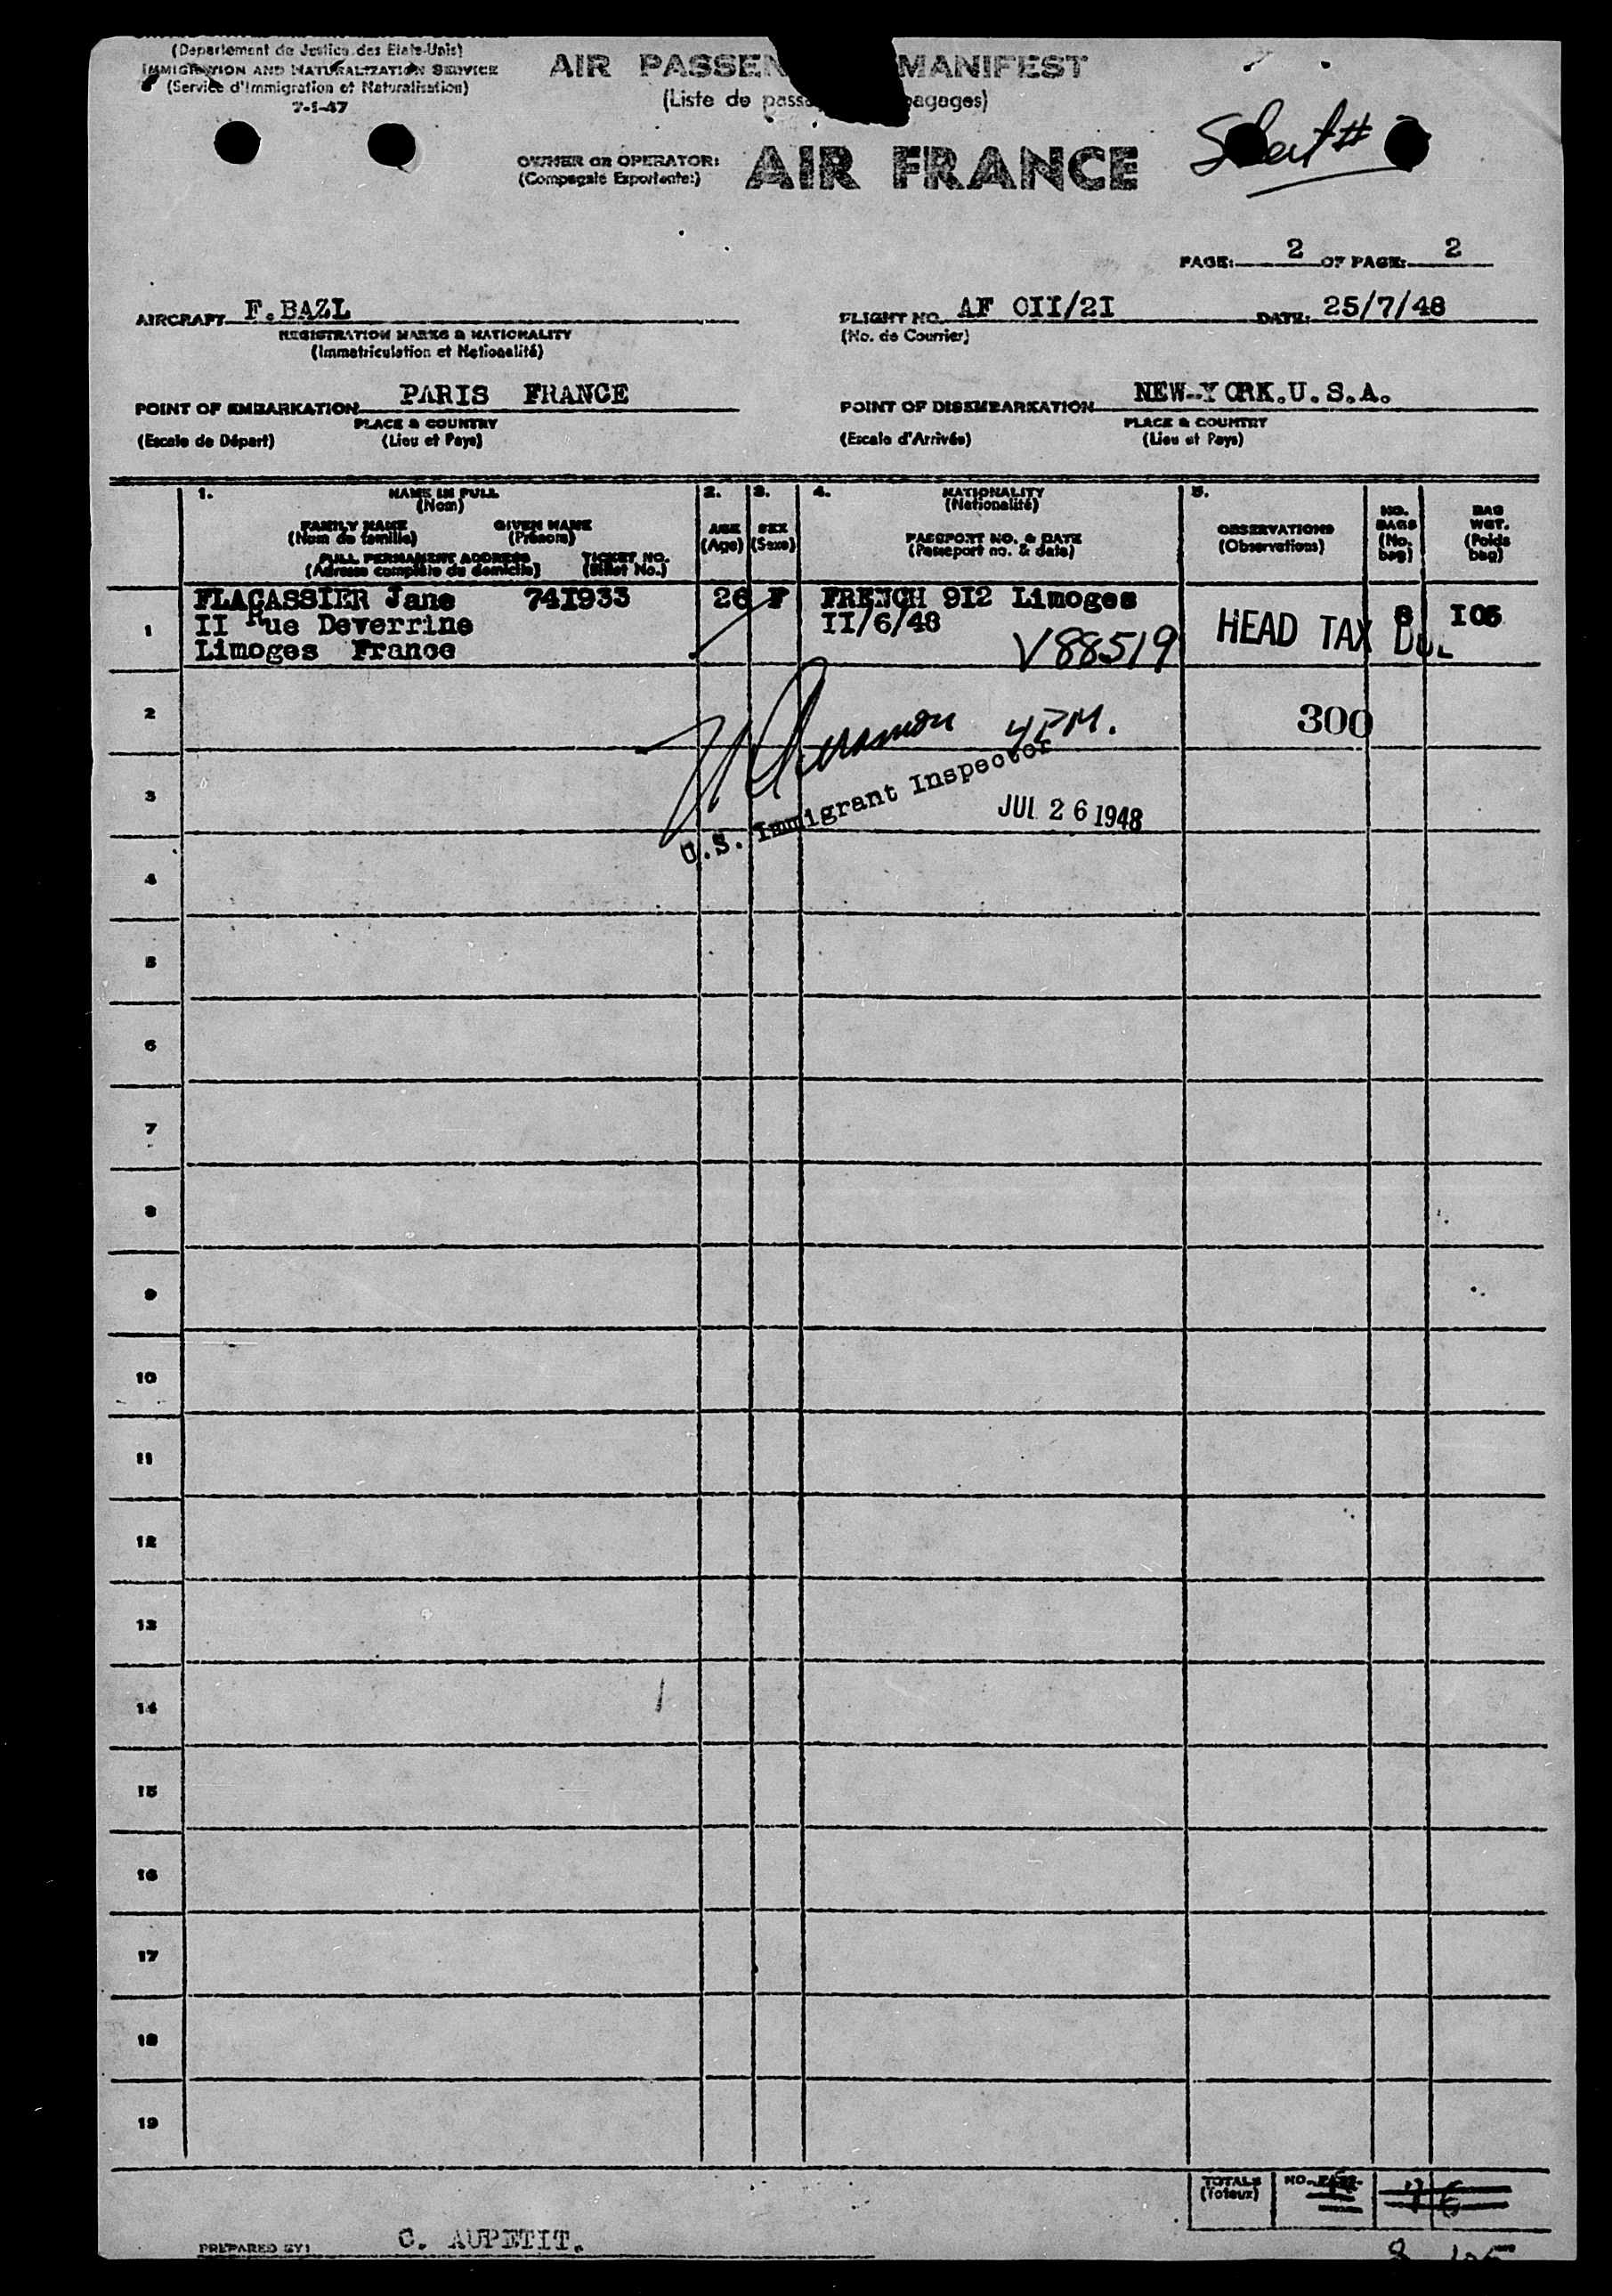 (Departement de Justice des Etats-Unis)
IMMIGRATION AND NATURALIZATION SERVICE
(Service d'Immigration et Naturalisation)
7-1-47
AIR PASSEN MANIFEST
(Liste de pass bagages)
OWNER OR OPERATOR: AIR FRANCE
(Compagnie Exportante:)
Sheet #
PAGE: 2 OF PAGE: 2
AIRCRAFT F.BAZL
REGISTRATION MARKS & NATIONALITY
(Immatriculation et Nationalité)
FLIGHT NO. AF OII/2I DATE: 25/7/48
(No. de Courrier)
POINT OF EMBARKATION PARIS FRANCE
PLACE & COUNTRY
(Escale de Départ) (Lieu et Pays)
POINT OF DISEMBARKATION NEW-YORK.U.S.A.
PLACE & COUNTRY
(Escale d'Arrivée) (Lieu et Pays)
1. NAME IN FULL
(Nom)
FAMILY NAME GIVEN NAME
(Nom de famille) (Prénom)
FULL PERMANENT ADDRESS TICKET NO.
(Adresse complète du domicile) (Billet No.)
2. AGE
(Age)
3. SEX
(Sexe)
4. NATIONALITY
(Nationalité)
PASSPORT NO. & DATE
(Passeport no. & date)
5. OBSERVATIONS
(Observations)
NO.
BAGS
(No.
bag)
BAG
WGT.
(Poids
bag)
1 FLACASSIER Jane 74I933 26 F FRENCH 9I2 Limoges 8 I05
II Rue Deverrine II/6/48
Limoges France V88519 HEAD TAX DUE
2 300
4 PM.
U.S. Immigrant Inspector
3 JUL 26 1948
4
5
6
7
8
9
10
11
12
13
14
15
16
17
18
19
TOTALS NO. PASS.
(Totaux)
PREPARED BY: C. AUPETIT.
8 105